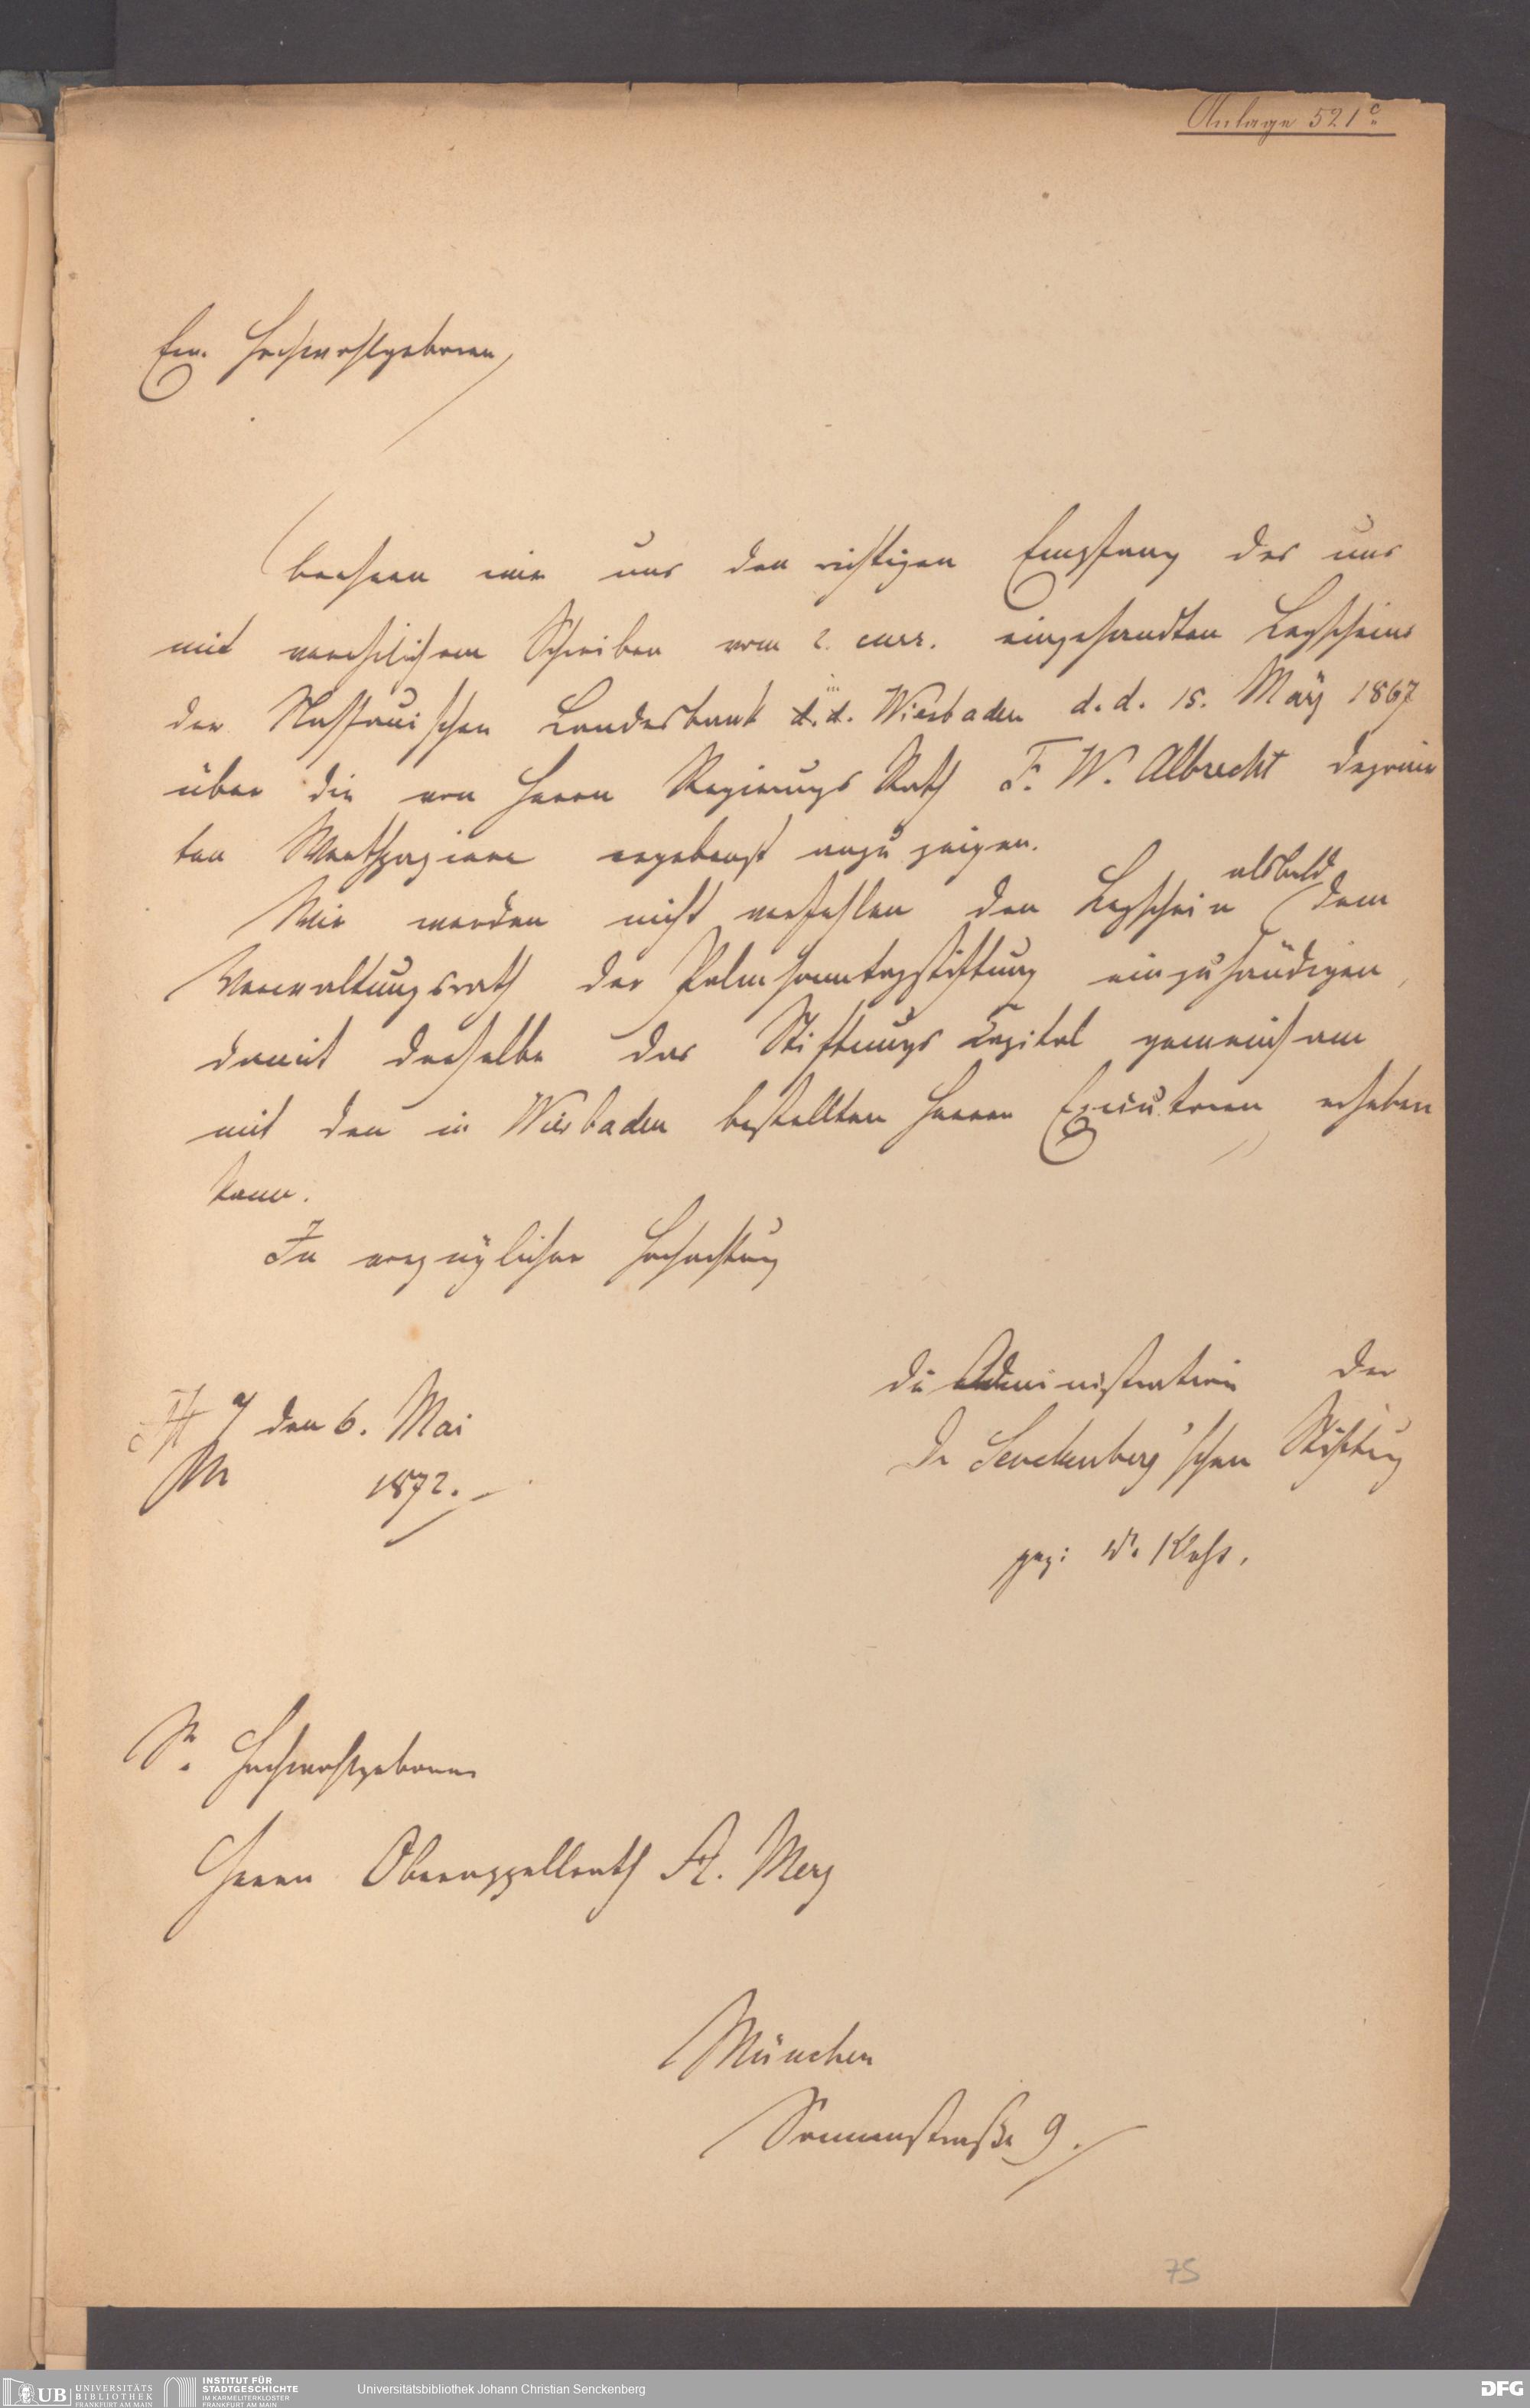 Anlage 521c
Ew. Hochwohlgeboren,
beehren wir uns den richtigen Empfang des uns
mit verehrlichem Schreiben vom 2. curr. eingesandten Legscheins
der Nassauischen Landesbank in Wiesbaden d. d. 15. März 1867
über die von Herrn Regierungs Rath F. W. Albrecht deponir
ten Werthpapiere ergebenst anzuzeigen.
Wir werden nicht verfehlen den Legschein alsbald dem
Verwaltungsrath der Palmsonntagstiftung einzuhändigen,
damit derselbe das Stiftungs Capital gemeinsam
mit den in Wiesbaden bestellten Herren Executoren erheben
kann.
In vorzüglicher Hochachtung
die Administration der
den 6. Mai
Dr Senckenberg'schen Stiftung
1872.
gez:
Sr. Hochwohlgeboren
Herrn Oberappellrath Dr. Merz
München
Sonnenstraße 9.
75
UB UNIVERSITÄTS
BIBLIOTHEK
FRANKFURT AM MAIN
INSTITUT FÜR
STADTGESCHICHTE
IM KARMELITERKLOSTER
FRANKFURT AM MAIN
Universitätsbibliothek Johann Christian Senckenberg
DFG